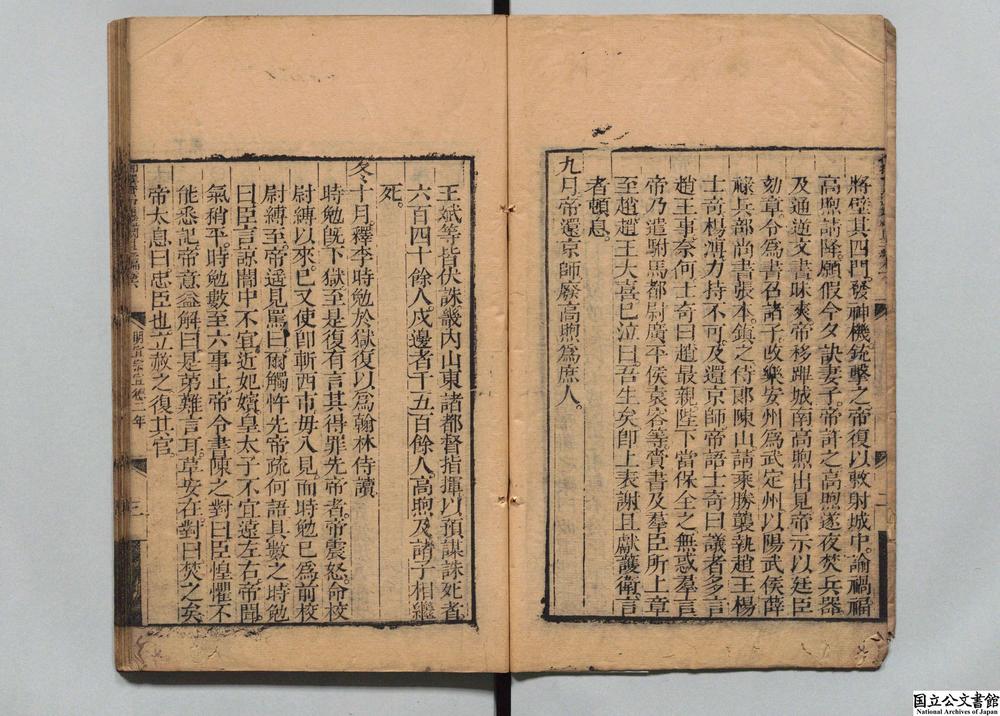 將壁其四門發神機銃擊之帝復以敕射城中諭禍福
高煦請降願假今夕訣妻子帝許之高煦遂夜焚兵器
及通逆文書昧爽帝移蹕城南高煦出見帝示以廷臣
劾章令爲書召諸子改樂安州爲武定州以陽武侯薛
祿兵部尚書張本鎮之侍郎陳山請乘勝襲執趙王楊
士奇楊溥力持不可及還京師帝語士奇曰議者多言
趙王事奈何士奇曰趙最親陛下當保全之無惑羣言
帝乃遣駙馬都尉廣平侯袁容等賷書及羣臣所上章
至趙趙王大喜巳泣曰吾生矣卽上表謝且獻護衛言
者頓息
九月帝還京師廢高煦爲庶人
王斌等皆伏誅畿內山東諸都督指揮以預謀誅死者
六百四十餘人戍邊者千五百餘人高煦及諸子相繼
死
冬十月釋李時勉於獄復以爲翰林侍讀
時勉旣下獄至是復有言其得罪先帝者帝震怒命校
尉縛以來巳又使卽斬西市毋入見而時勉巳爲前校
尉縛至帝遙見罵曰爾觸忤先帝疏何語具數之時勉
曰臣言諒闇中不宜近妃嬪皇太子不宜遠左右帝聞
氣稍平時勉數至六事止帝令書陳之對曰臣惶懼不
能悉記帝意益解曰是第難言耳草安在對曰焚之矣
帝太息曰忠臣也立赦之復其官
明宣宗宣德二年
三
二
国立公文書館
National Archives of Japan